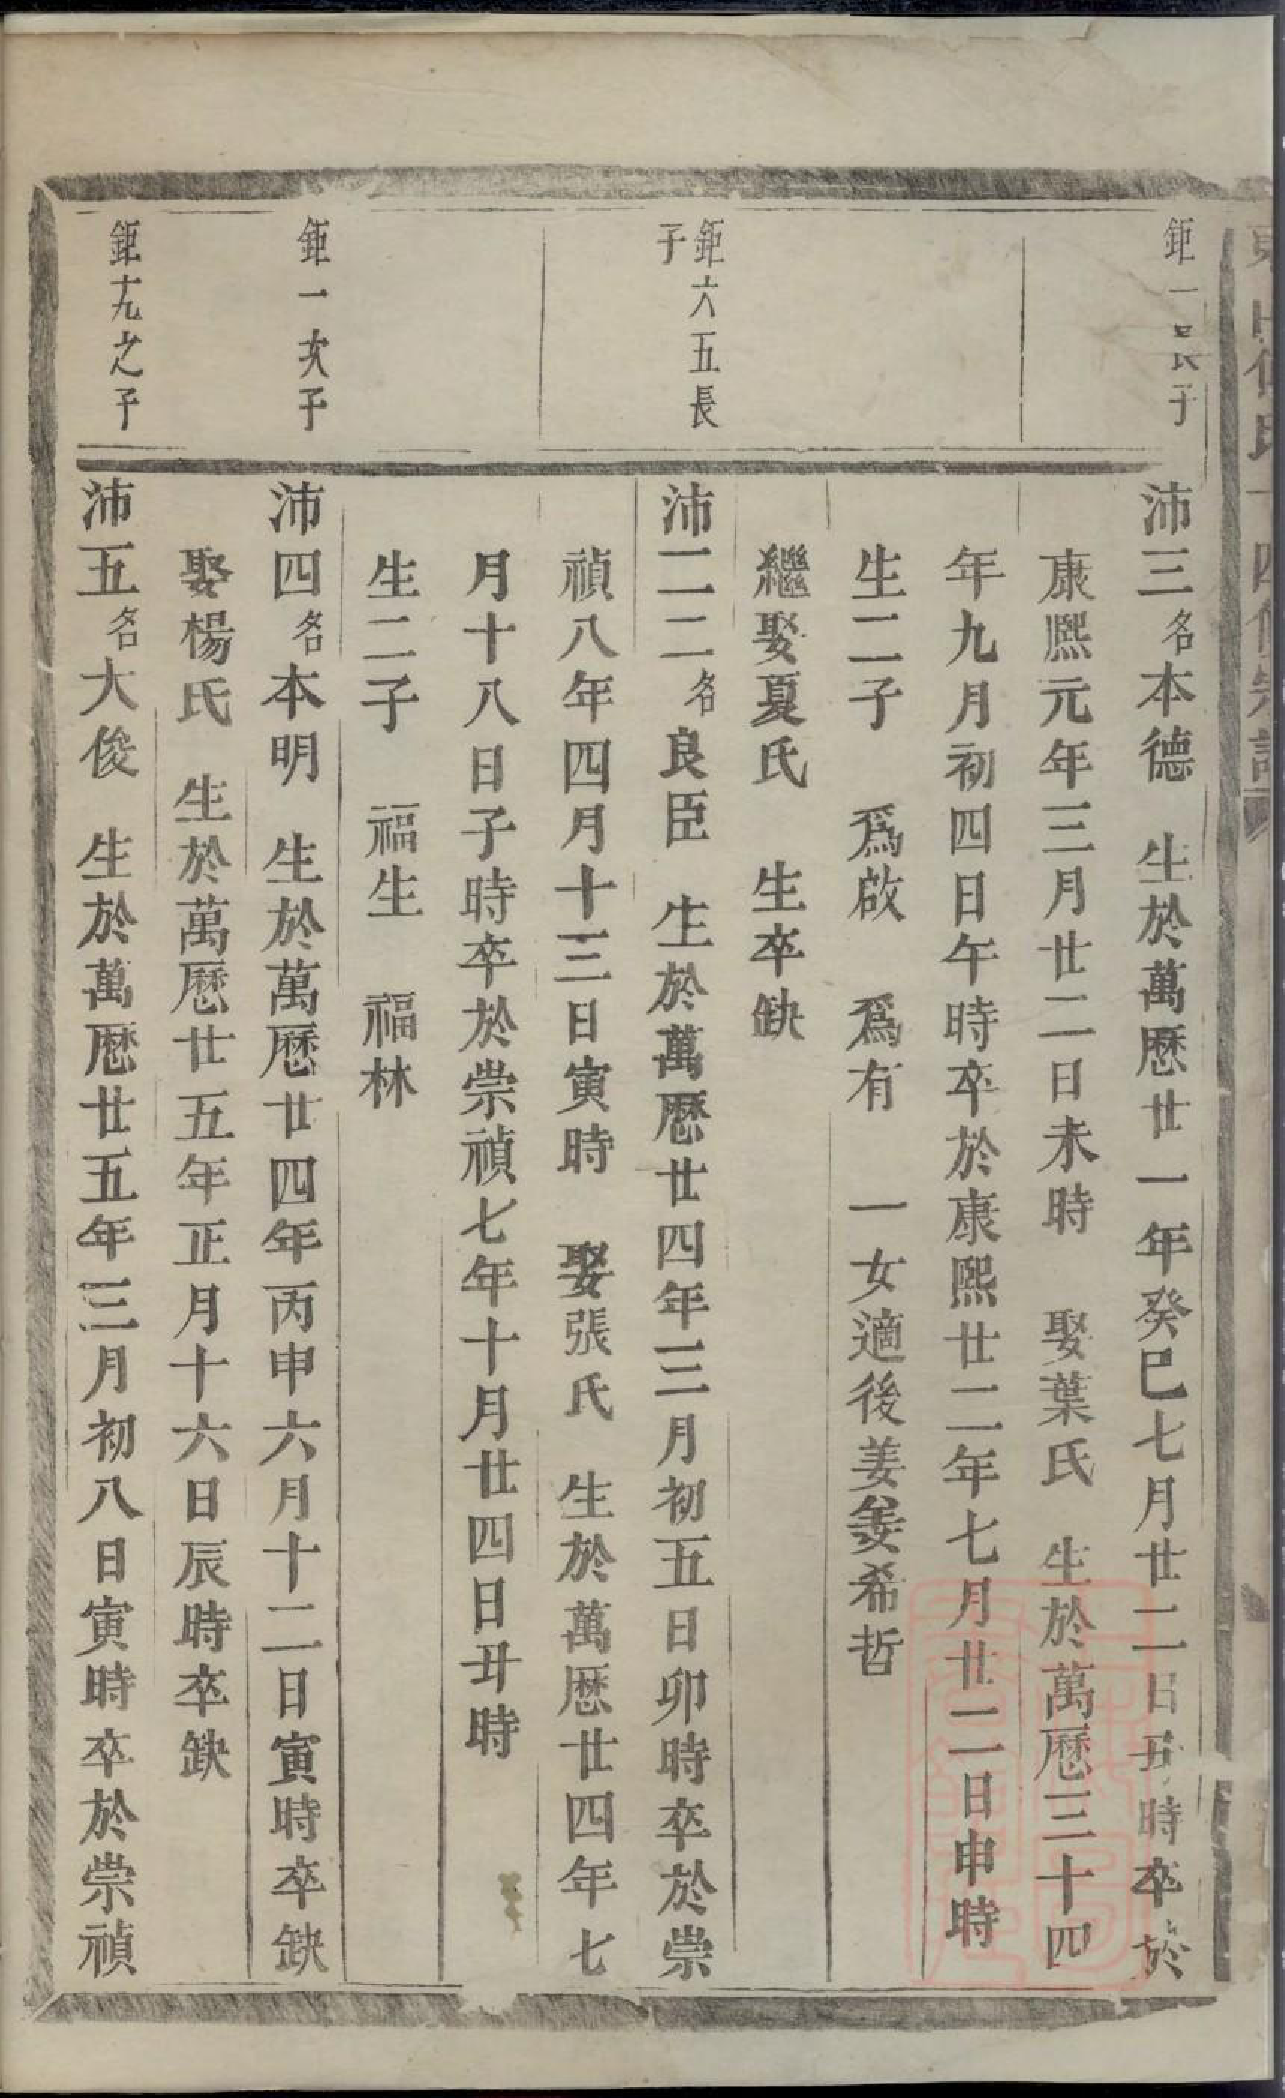 鉅一長子
沛三名本德　生於萬歷廿一年癸巳七月廿二日丑時卒於
康熙元年三月廿二日未時　娶葉氏　生於萬歷三十四
年九月初四日午時卒於康熙廿二年七月廿二日申時
生二子　爲啟　爲有　一女適後姜姜希哲
繼娶夏氏　生卒缺
鉅六五長
子
沛二二名良臣　生於萬歷廿四年三月初五日卯時卒於崇
禎八年四月十三日寅時　娶張氏　生於萬歷廿四年七
月十八日子時卒於崇禎七年十月廿四日丑時
生二子　福生　福林
鉅一次子
沛四名本明　生於萬歷廿四年丙申六月十二日寅時卒缺
娶楊氏　生於萬歷廿五年正月十六日辰時卒缺
鉅十九之子
沛五名大俊　生於萬歷廿五年三月初八日寅時卒於崇禎